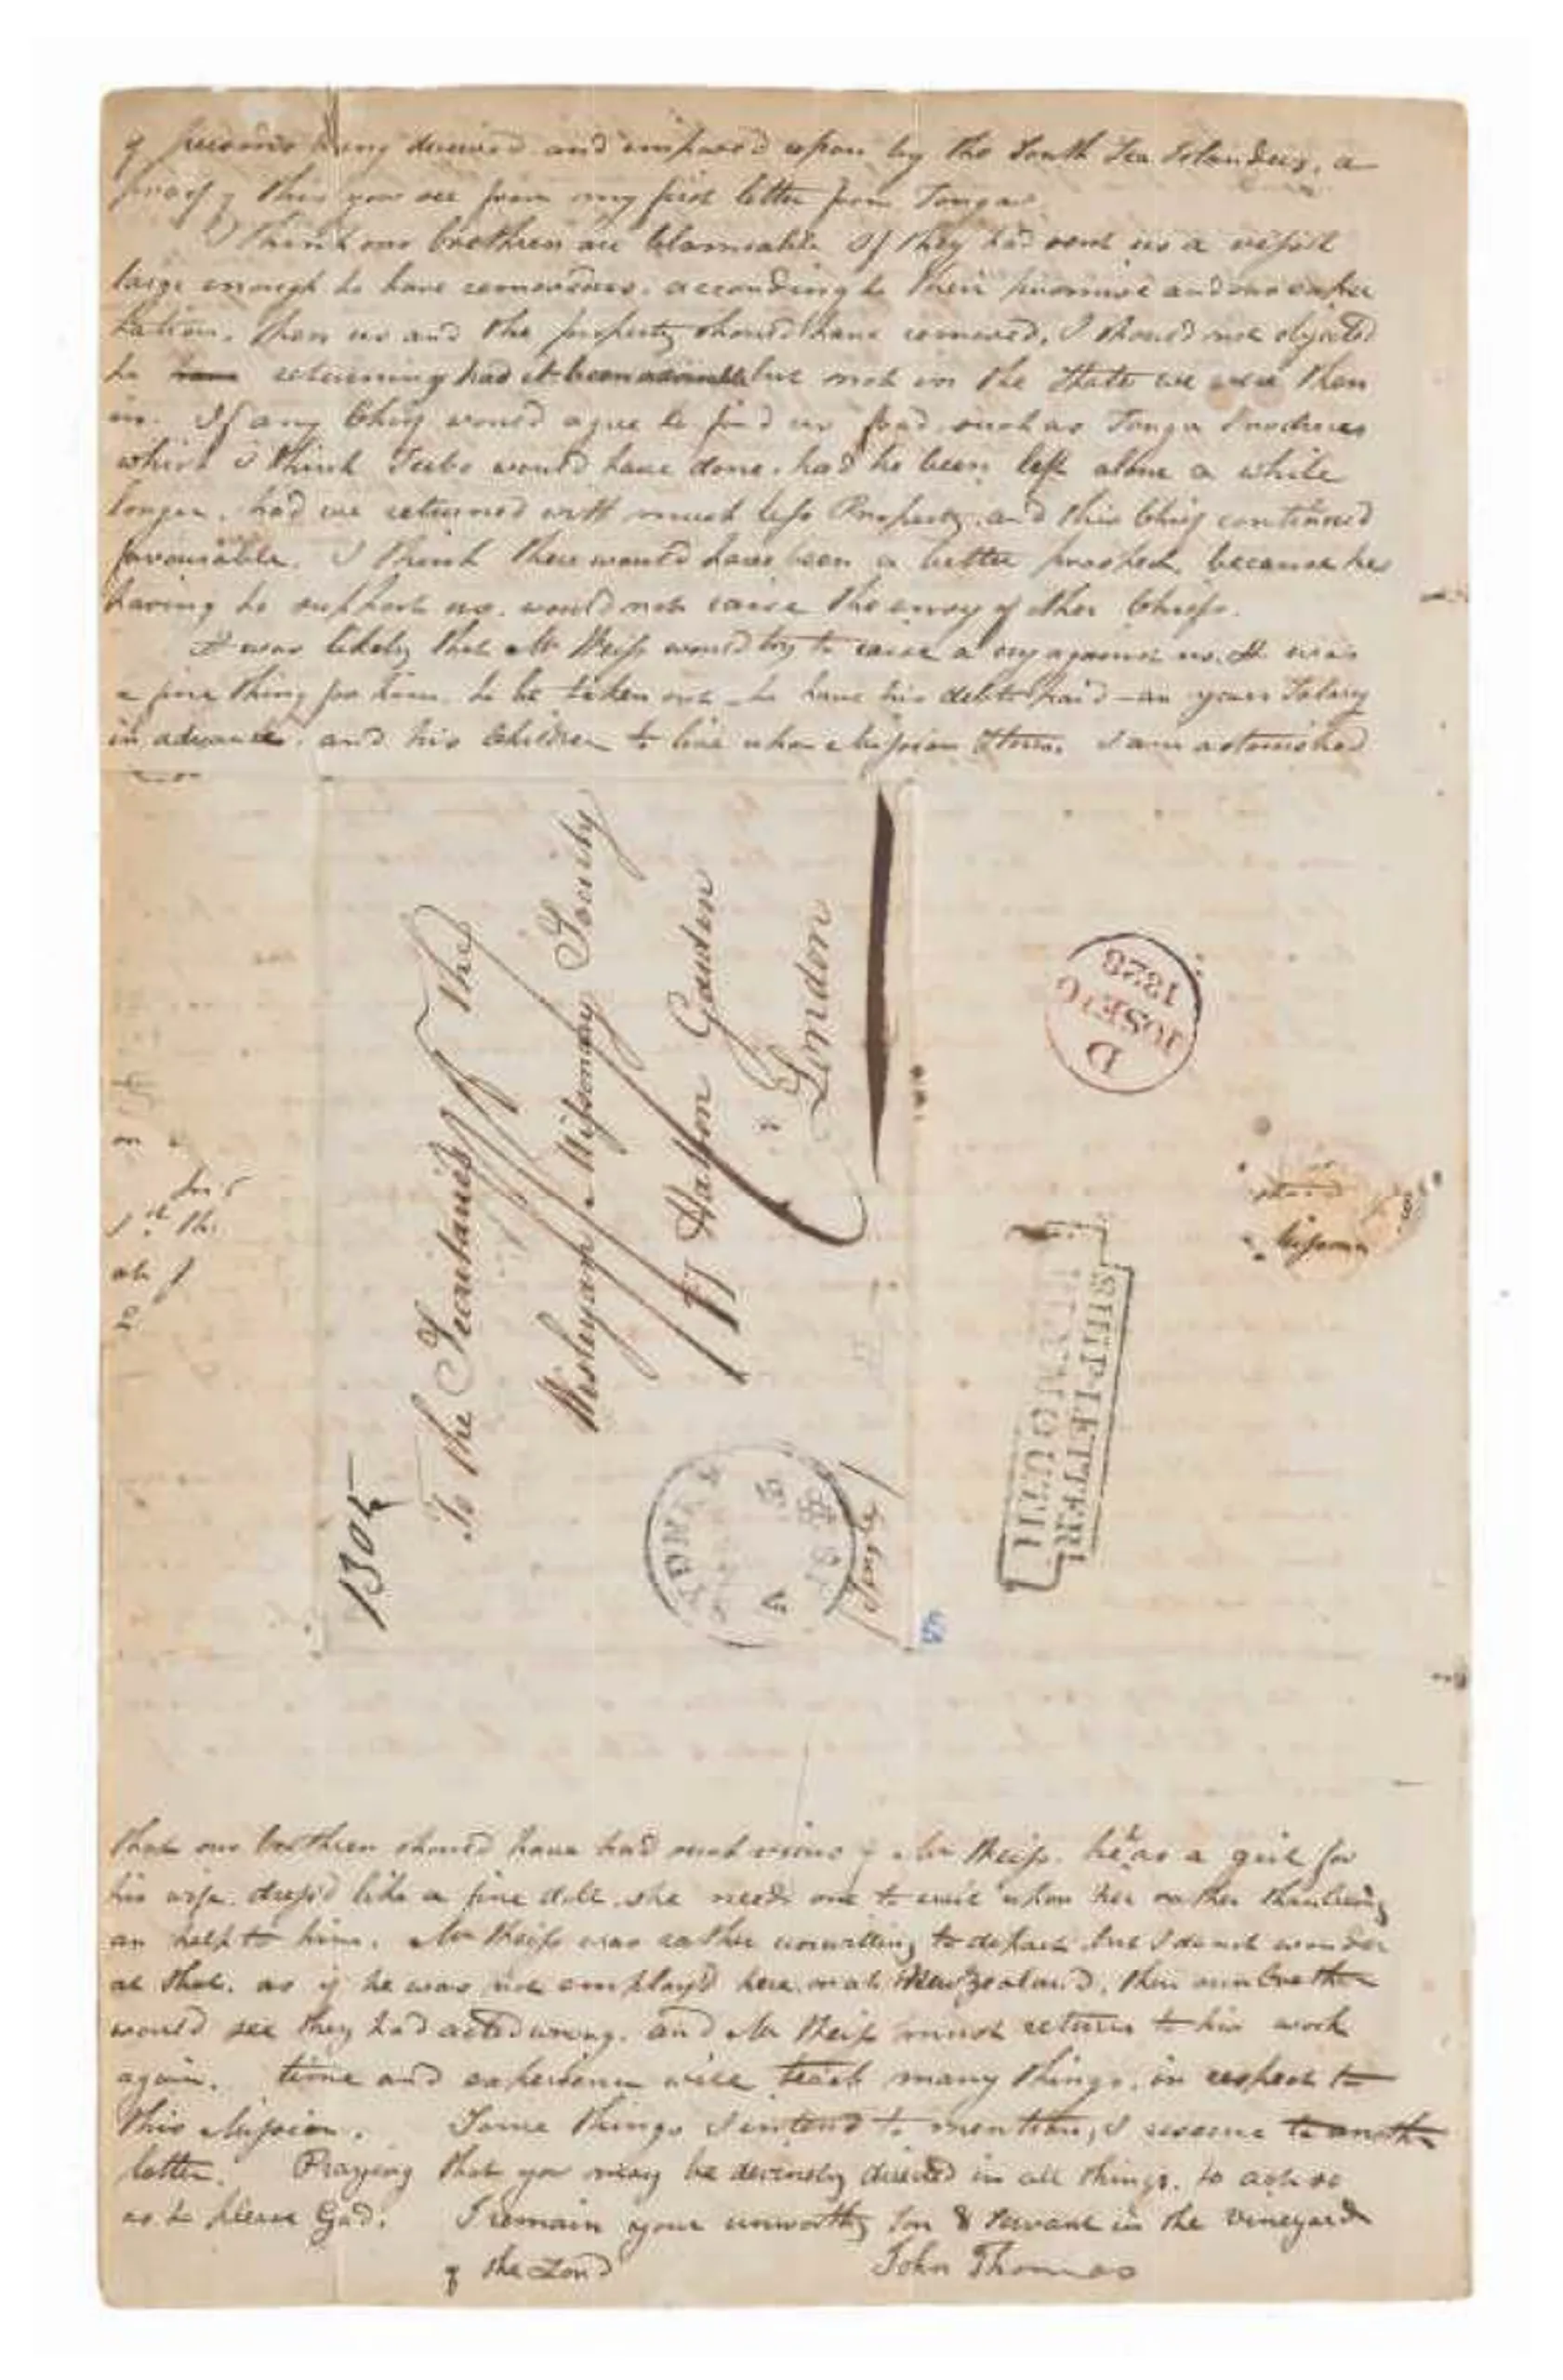 of persons being deceived and imposed upon by the South Sea Islanders, a
proof of this you see from my first letter from Tonga.
I think our brethren are blameable If they had sent us a vessel
large enough to have removed us, according to their promise and our expec
tation, then us and the property should have removed, I should not objected
to returning had it been but not in the State we were then
in. If any Chief would agree to find us food, such as Tonga Produces
which I think Tubo would have done, had he been left alone a while
longer, had we returned with much less Property, and this Chief continued
favourable. I think there would have been a better prospect, because his
having to support us, would not raise the envy of other Chiefs.
It was likely that Mr Weiss would try to raise a cry against us. It was
a fine thing for him, to be taken out – to have his debts paid – an years Salary
in advance, and his Children to live upon Mission Stores. I am astonished
1305
To the Secretaries of the
Wesleyan Missionary Society
77 Hatton Garden
London
SYDNEY
Single
D
10 SE 10
1828
SHIP LETTER
PLYMOUTH
that our brethren should have had such views of Mr Weiss. he has a girl for
his wife, dress'd like a fine doll, she needs one to wait upon her rather than being
an help to him. Mr Weiss was rather unwilling to depart but I do not wonder
at that, as if he was not employ'd here, or at New Zealand, then our brethren
would see they had acted wrong, and Mr Weiss must return to his work
again. time and experience will teach many things, in respect to
this Mission. Some things I intend to mention, I reserve to another
letter. Praying that you may be divinely directed in all things, to act so
as to please God. I remain your unworthy Son & Servant in the vineyard
of the Lord John Thomas